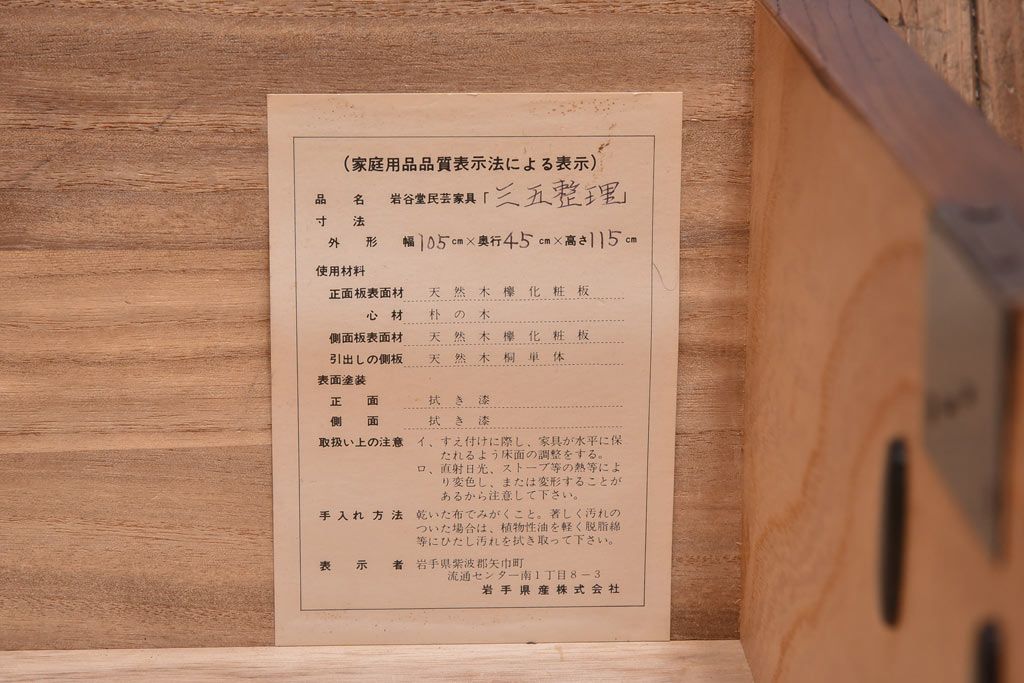 (家庭用品品質表示法による表示)
品名 岩谷堂民芸家具「三五整理」
寸法
外形 幅105cm×奥行45cm×高さ115cm
使用材料
正面板表面材 天然木欅化粧板
心材 朴の木
側面板表面材 天然木欅化粧板
引出しの側板 天然木桐単体
表面塗装
正面 拭き漆
側面 拭き漆
取扱い上の注意 イ、すえ付けに際し、家具が水平に保
たれるよう床面の調整をする。
ロ、直射日光、ストーブ等の熱等によ
り変色し、または変形することが
あるから注意して下さい。
手入れ方法 乾いた布でみがくこと。著しく汚れの
ついた場合は、植物性油を軽く脱脂綿
等にひたし汚れを拭き取って下さい。
表示者 岩手県紫波郡矢巾町
流通センター南1丁目8-3
岩手県産株式会社